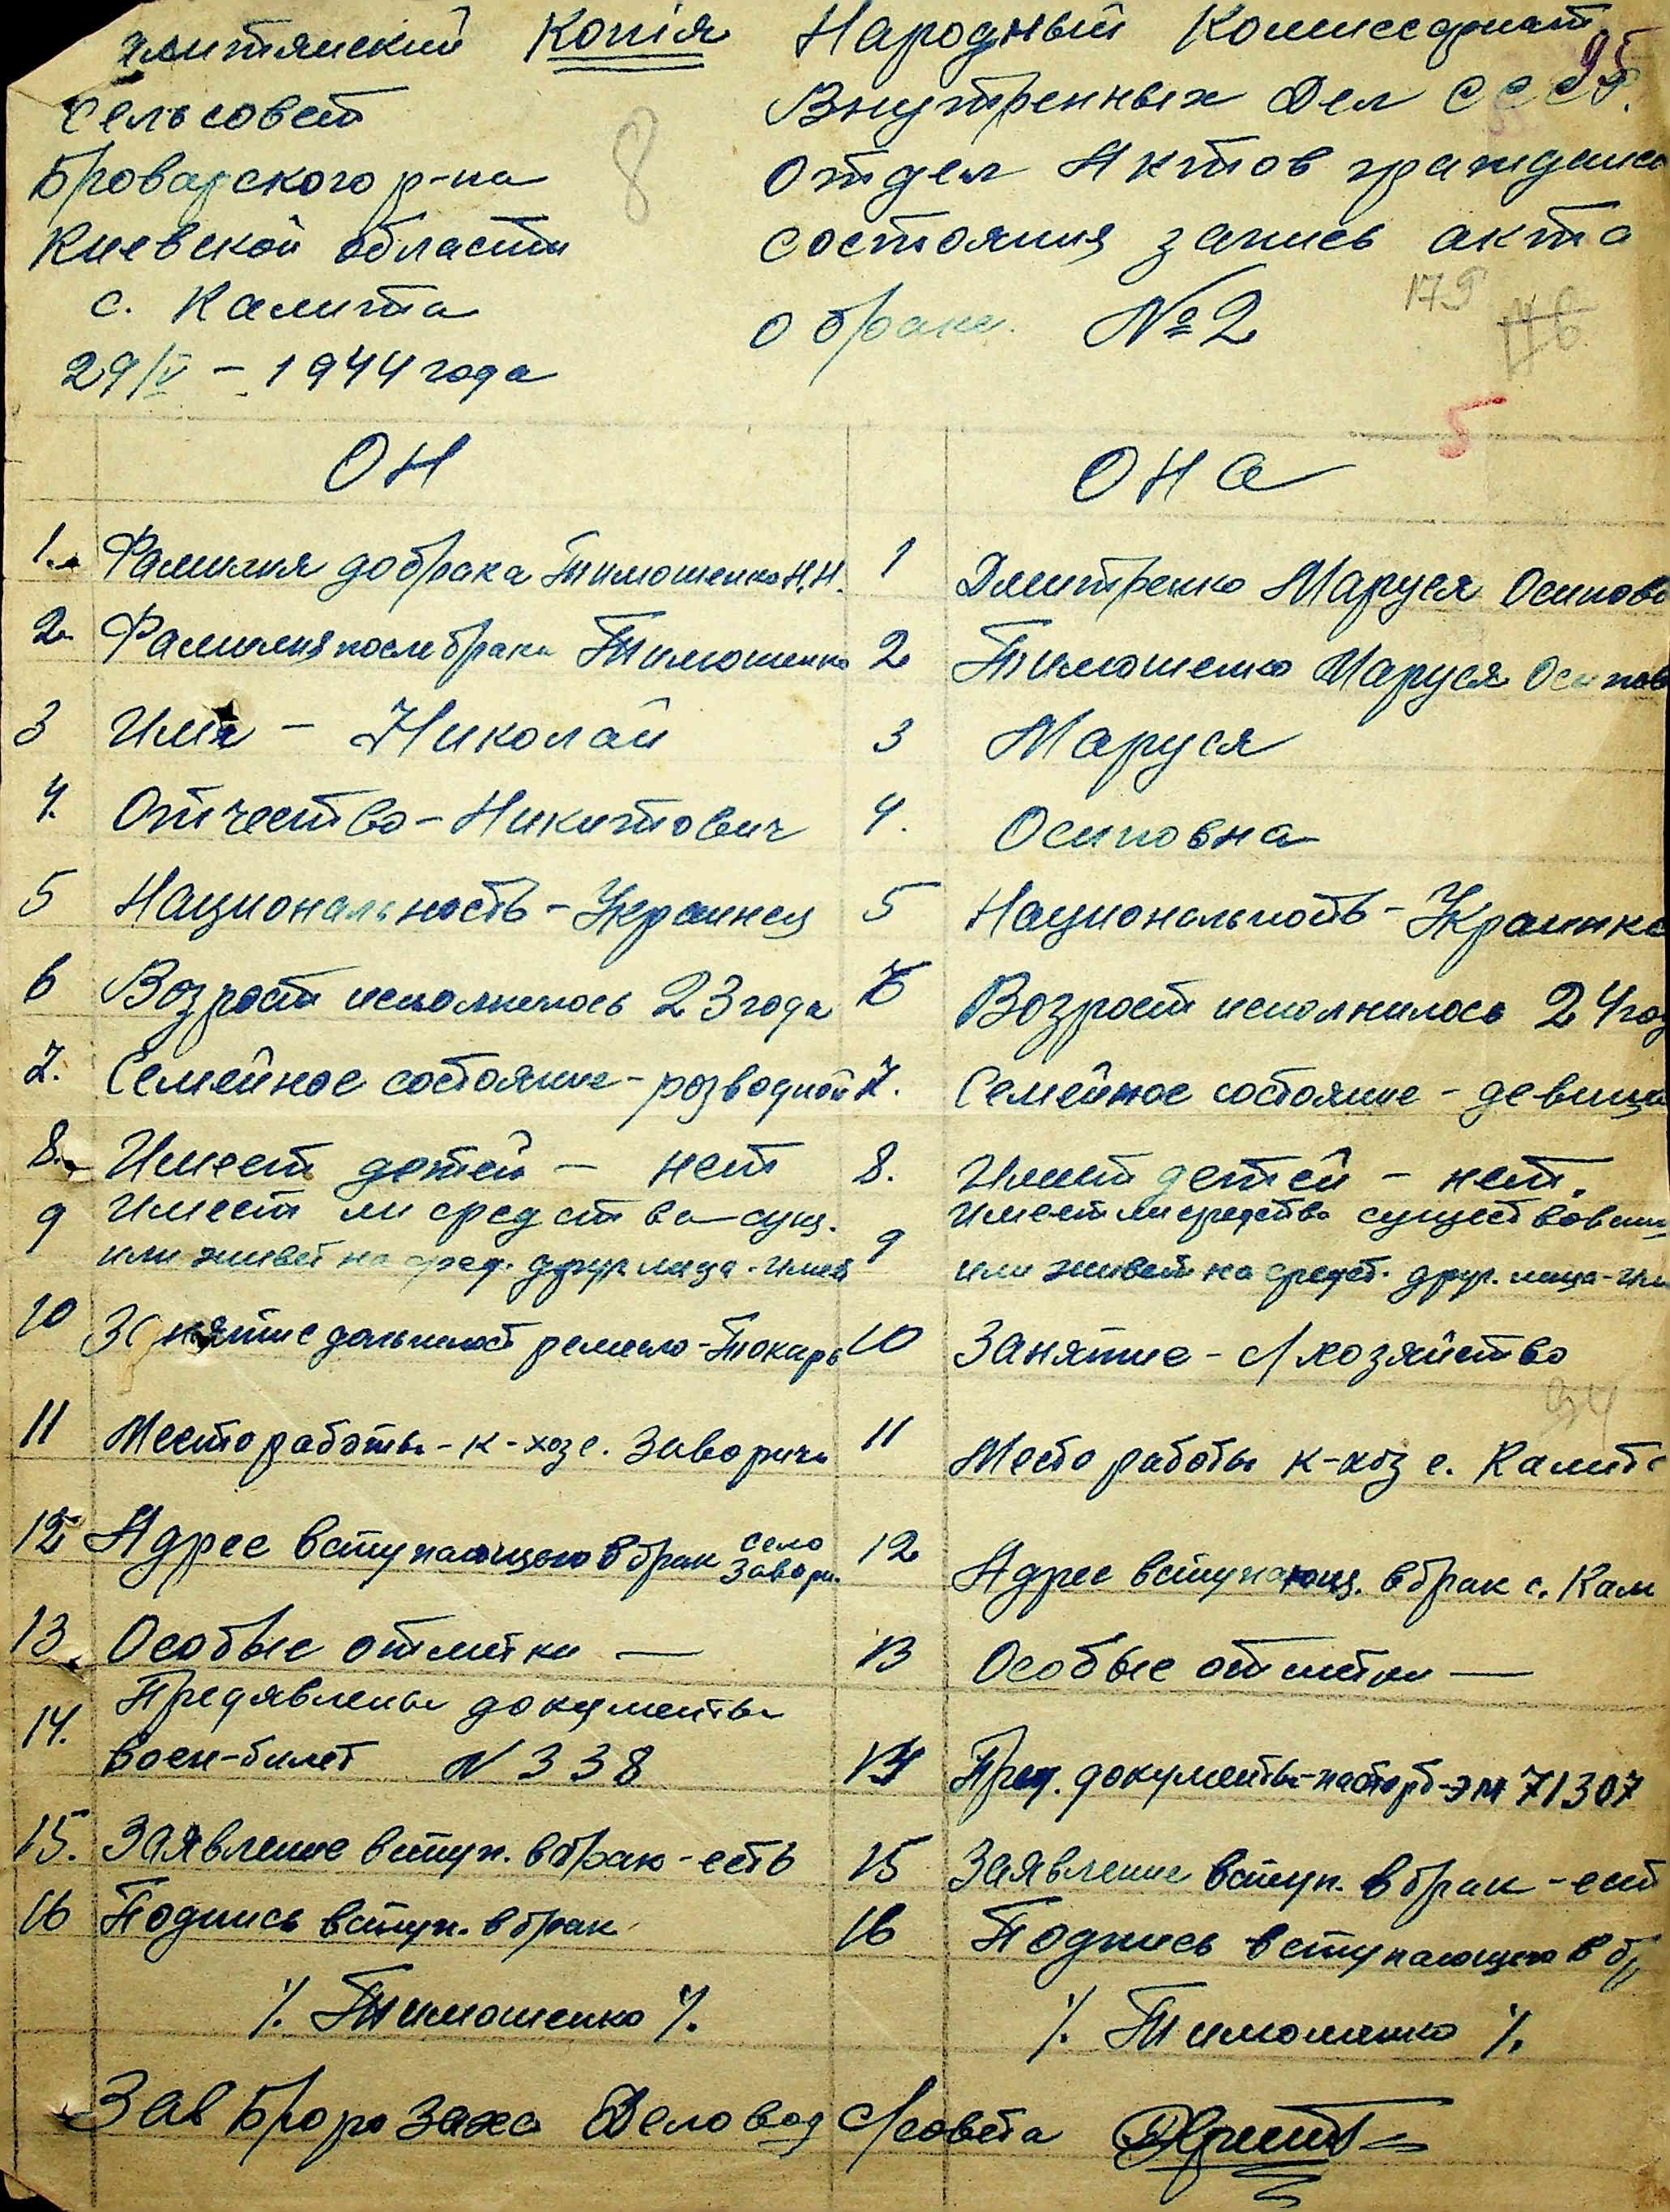 Копія
95
Сельсовет
Броварского р-на
Киевской области
с. Калита
29/V – 1944 года
8
Народный Комиссариат
Внутренных Дел СССР.
Отдел Актов граждан
состояния запись акта
о браке. № 2
179
146
5
ОН
ОНа
1. Фамилия до брака Тимошенко Н.Н.
1 Дмитренко Маруся Осипов
2. Фамилия после брака Тимошенко
2 Тимошенко Маруся Осипов
3 Имя – Николай
3 Маруся
4. Отчество – Никитович
4. Осиповна
5 Национальность – Украинец
5 Национальность – Украинка
6 Возрост исполнилось 23 года
6 Возрост исполнилось 24 год
7. Семейное состояние – розводной
7. Семейное состояние – девица
8. Имеет детей – нет
8. Имеет детей – нет.
9 Имеет ли средства сущ.
или живет на сред. друг. лица - имеет
9 Имеет ли средства существован
или живет на средст. друг. лица - им
10 Занятие должност ремесло - Токарь
10 Занятие – с/хозяйство
34
11 Место работы - к-хоз с. Заворичи
11 Место работы к-хоз с. Калита
12 Адрес вступающего в брак село
Завори.
12 Адрес вступающ. в брак с. Кали
13. Особые отметки —
13 Особые отметки —
14. Предявлены документы
Воен-билет N 338
14 Пред. документы - паспорт - ЭМ 71307
15. Заявление вступ. в брак - есть
15 Заявление вступ. в брак - ест
16 Подпись вступ. в брак
16 Подпись вступающего в бр
/. Тимошенко /.
/. Тимошенко /.
Зав Бюро Загса Деловод С/совета